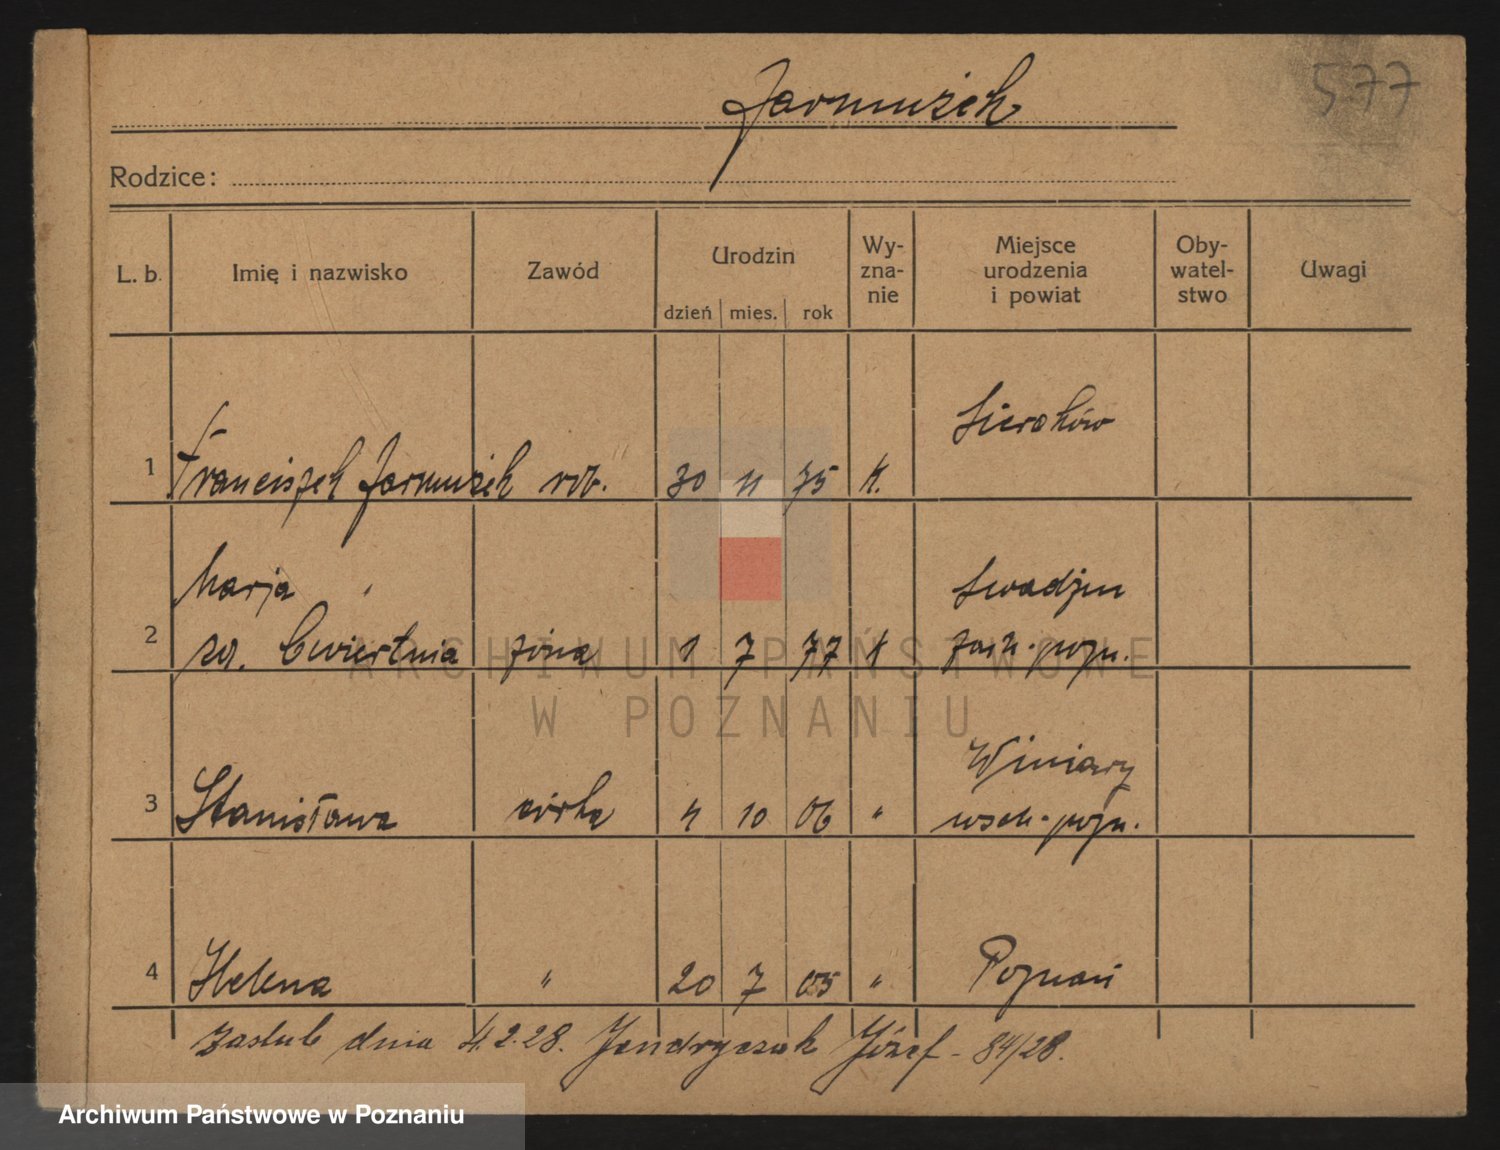 577
Jarmużek
Rodzice:
L. b. Imię i nazwisko Zawód Urodzin dzień mies. rok Wy- zna- nie Miejsce urodzenia i powiat Oby- watel- stwo Uwagi
Sieraków
1 Franciszek Jarmużek rob. 30 11 75 k.
Marja " Swadzim
2 zd. Ćwiertnia żona 1 7 77 k zach. pozn.
Winiary
3 Stanisława córka 4 10 06 " wsch. pozn.
4 Helena " 20 7 05 " Poznań
zaślub dnia 4.2.28. Jendryczak Józef - 84/28.
ARCHIWUM PAŃSTWOWE
W POZNANIU
Archiwum Państwowe w Poznaniu